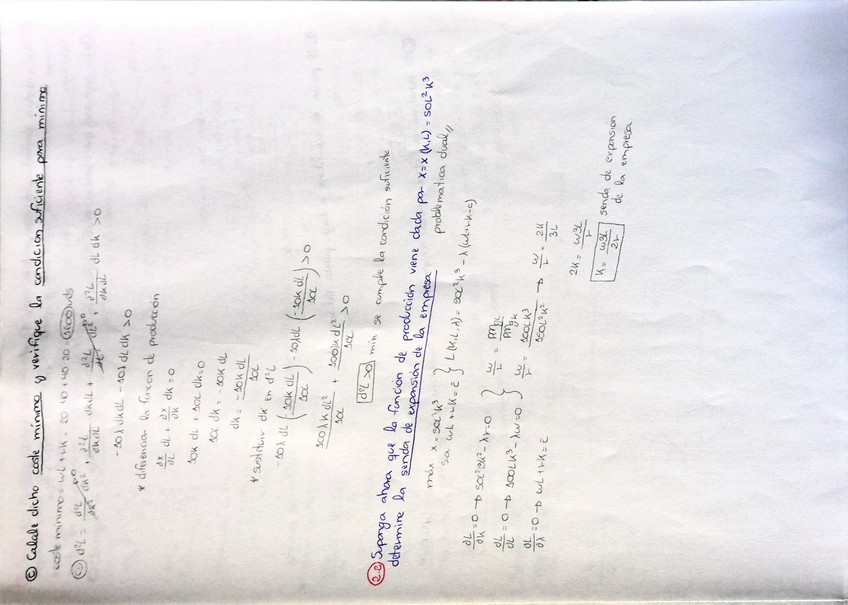 © Calcule dicho coste mínimo y verifique la condición suficiente para mínimo
coste mínimo = wL + rK = 20·40 + 40·20 = 1600 uds
d²L = ∂²L/∂K² dK² + ∂²L/∂K∂L dKdL + ∂²L/∂L² dL² + ∂²L/∂K∂L dL dK > 0
-10λ dKdL - 10λ dL dK > 0
* diferenciar la función de producción
∂x/∂L dL + ∂x/∂K dK = 0
10K dL + 10L dK = 0
10L dK = -10K dL
dK = -10K dL / 10L
* sustituir dK en d²L
-10λ dL (-10K dL / 10L) - 10λ dL (-10K dL / 10L) > 0
100λ K dL² / 10L + 100λ K dL² / 10L > 0
d²L > 0 min se cumple la condición suficiente
2.2 Suponga ahora que la función de producción viene dada por x = x(K,L) = 50L²K³
determine la senda de expansión de la empresa
problemática dual //
máx x = 50L²K³
s.a wL + rK = c̄ } L(K,L,λ) = 50L²K³ - λ(wL + rK - c)
∂L/∂K = 0 → 50L²3K² - λr = 0
∂L/∂L = 0 → 100LK³ - λw = 0 } w/r = PMgL/PMgK
∂L/∂λ = 0 → wL + rK = c̄ w/r = 100LK³/150L²K² → w/r = 2K/3L
2K = w3L/r
K = w3L/2r senda de expansión
de la empresa